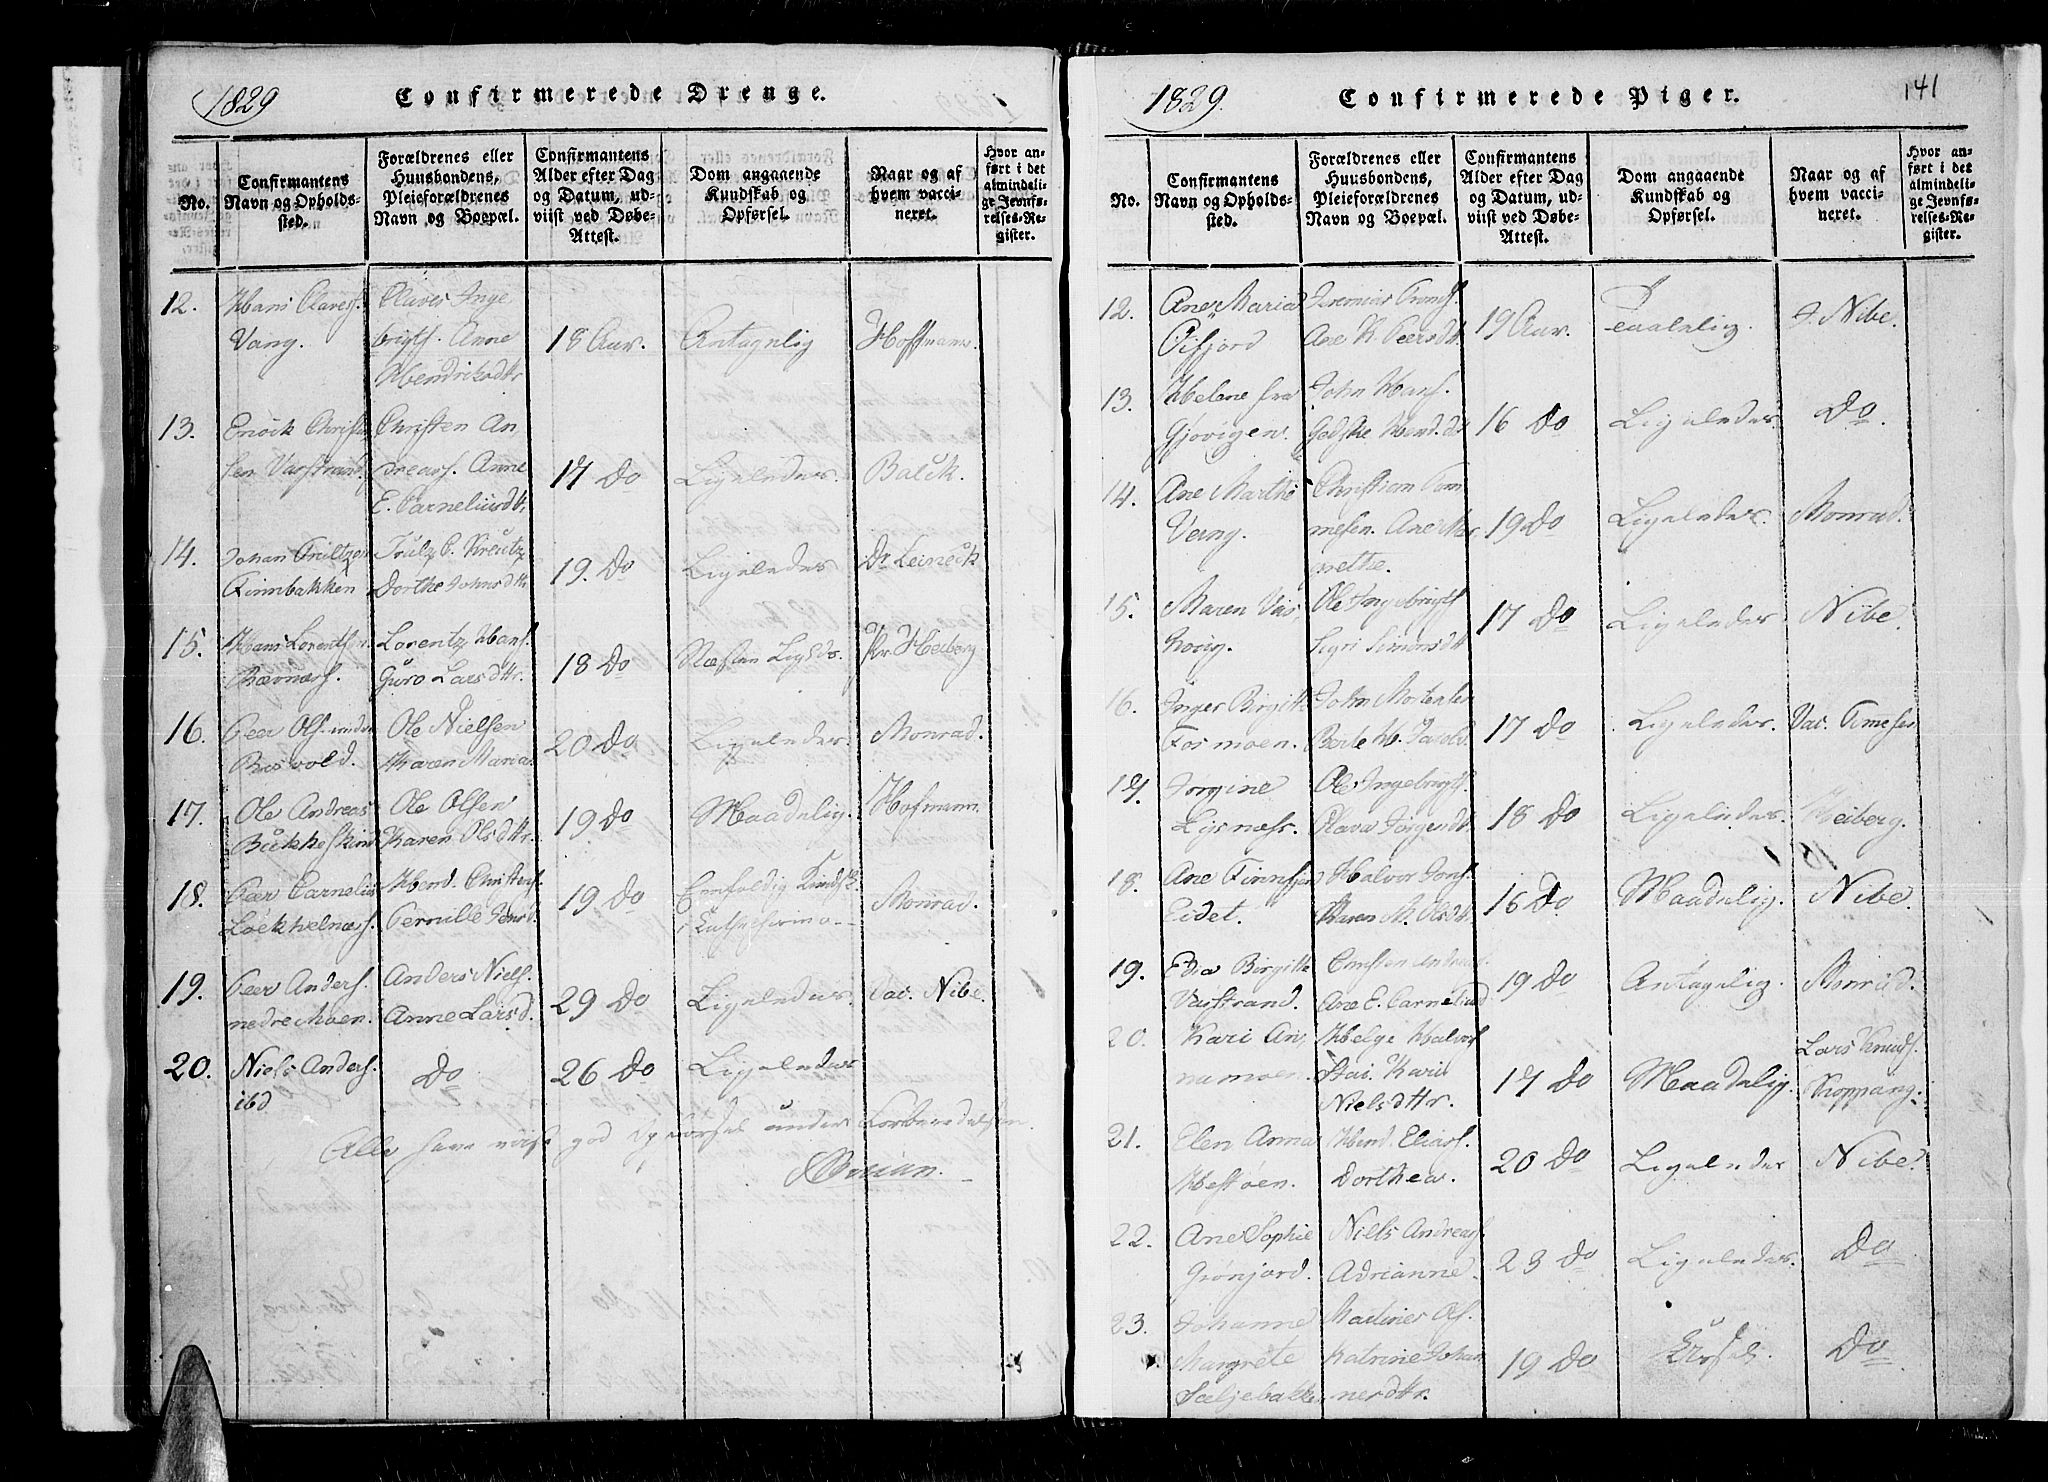 1829 Confirmerede Drenge.
No.
Confirmantens
Navn og Opholds-
sted.
Forældrenes eller
Huusbondens,
Pleieforældrenes
Navn og Boepæl.
Confirmantens
Alder efter Dag
og Datum, ud-
viist ved Døbe-
Attest.
Dom angaaende
Kundskab og
Opførsel.
Naar og af
hvem vacci-
neret.
Hvor an-
ført i det
almindeli-
ge Jevnfø-
relses-Re-
gister.
12. Hans Olavess.
Vang.
Olaves Inge
brigts. Anne
Hendriksdttr
18 Aar. Antagelig Hoffmann.
13. Enock Christen
sen Varstrand
Christen An
dreass. Anne
E. Cornelius dtr.
17 Do Ligeledes. Balck.
14. Johan
Finnbakken
Truls C. Kreutz
Dorthe Johns dttr
19. Do Ligeledes Dr Leineck
15. Hans Lorents
Lorentz Hans.
Guro Lars dttr.
18 Do Næsten Ligeds. Pr Heiberg
16. Peer Ols. nedre
Ole Nielsen
Karen Maria
20 Do Ligeledes. Monrad.
17. Ole Andreas
Bukkeskind
Ole Olsen
Karen Olsdttr.
19 Do Maadelig. Hofmann.
18. Peer Cornelius
Hend. Christens.
Pernille Jensd.
19 Do Eenfoldig Kundsk.
Monrad.
19. Peer Anders.
nedre Moen.
Anders Niels.
Anne Larsd.
29 Do Ligeledes. Vac. Nibe.
20. Niels Anders.
ibd
Do 26 Do Ligeledes
Alle have viist god Opførsel under Forberedelsen.
1829. Confirmerede Piger. 141
No.
Confirmantens
Navn og Opholds-
sted.
Forældrenes eller
Huusbondens,
Pleieforældrenes
Navn og Boepæl.
Confirmantens
Alder efter Dag
og Datum, ud-
viist ved Døbe-
Attest.
Dom angaaende
Kundskab og
Opførsel.
Naar og af
hvem vacci-
neret.
Hvor an-
ført i det
almindeli-
ge Jevnfø-
relses-Re-
gister.
12. Ane Maria
Gifjord
Jeremias Tronds.
Ane K. Peersdtr.
19 Aar. Taalelig. J. Nibe.
13. Helene fra
Gjøvigen.
John Hans.
Godske Hend. dtr
16 Do Ligeledes Do.
14. Ane Marthe
Vang.
Christian Tom
mesen. Ane Mar
grethe.
19 Do Ligeledes. Monrad.
15. Maren Vas,
hovig.
Ole Ingebrigts
Sigri Simonsdtr
17 Do Ligeledes Nibe.
16. Inger Birgitte
Fosmoen.
John Mortensen
17 Do Ligeledes. Vac. Timesen
17. Jørgine
Lysnæss.
Ole Ingebrigts.
Olava Jørgendtr.
18 Do Ligeledes. Heiberg.
18. Ane Finnfjord
Eidet.
Halvor Jons.
Karen M. Olsdtr
16 Do Maadelig. Nibe.
19. Edia Birgitte
Varstrand.
Christen Andreas.
Ane E. Cornelius d
19 Do Antagelig. Monrad.
20. Kari An,
namoen.
Helge Halvors
Stai. Kari
Nielsdttr.
17 Do Maadelig. Lars Knuds.
Koppang.
21. Elen Anna
Hestøen.
Hend. Elias.
Dorthea.
20 Do Ligeledes Nibe.
22. Ane Sophie
Grønjord.
Niels Andreas.
Adrianne.
23 Do Ligeledes. Do
23. Johanne
Margrete
Sæljebakken
Martines Ols.
Katrine Johan
nesdttr.
19 Do Do